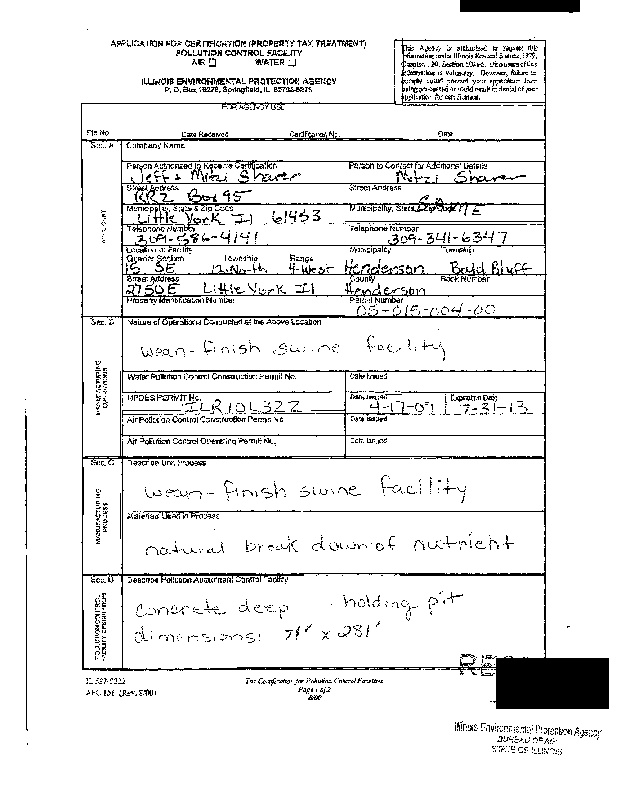 APPLICATION FOR CERTIFICATION (PROPERTY TAX TREATMENT)
POLLUTION CONTROL FACILITY
AIR ☐ WATER ☐
ILLINOIS ENVIRONMENTAL PROTECTION AGENCY
P. O. Box 19276, Springfield, IL 62794-9276
This Agency is authorized to request this
information under Illinois Revised Statutes, 1979,
Disclosure of this
information is voluntary. However, failure to
comply could prevent your application from
being processed or could result in denial of your
application for certification.
FOR AGENCY USE
File No. Date Received Certification No. Date
Sec. A Company Name
APPLICANT
Person Authorized to Receive Certification Person to Contact for Additional Details
Jeff & Mitzi Sharer Mitzi Sharer
Street Address Street Address
RR2 Box 95
Municipality, State & Zip Code Municipality, State & Zip Code
Little York Il 61453 SAME
Telephone Number Telephone Number
309-586-4141 309-341-6347
Location of Facility Municipality Township
Quarter Section Township Range
15 SE 12 North 4 West Henderson Bald Bluff
Street Address County Book Number
2750E Little York Il Henderson
Property Identification Number Parcel Number
05-015-004-00
Sec. B Nature of Operations Conducted at the Above Location
MANUFACTURING OPERATIONS
wean-finish swine facility
Water Pollution Control Construction Permit No. Date Issued
NPDES PERMIT No. Date Issued Expiration Date
ILR10L322 4-17-09 7-31-13
Air Pollution Control Construction Permit No. Date Issued
Air Pollution Control Operating Permit No. Date Issued
Sec. C Describe Unit Process
MANUFACTURING PROCESS
wean-finish swine facility
Materials Used in Process
natural break down of nutrient
Sec. D Describe Pollution Abatement Control Facility
POLLUTION CONTROL FACILITY DESCRIPTION
concrete deep holding pit
dimensions: 71' x 281'
Tax Certification for Pollution Control Facilities
Page 1 of 2
Illinois Environmental Protection Agency
BUREAU OF AIR
STATE OF ILLINOIS